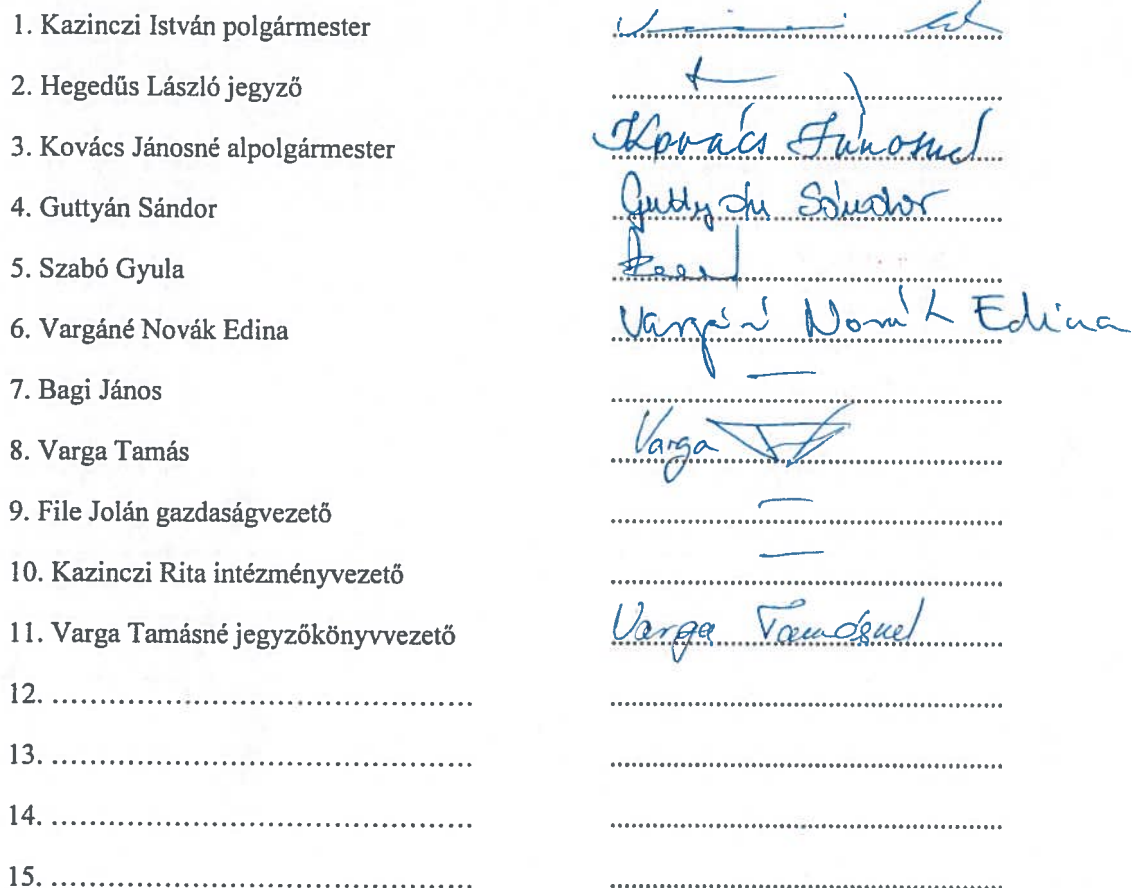 1. Kazinczi István polgármester
2. Hegedűs László jegyző
3. Kovács Jánosné alpolgármester Kovács Jánosné
4. Guttyán Sándor Guttyán Sándor
5. Szabó Gyula
6. Vargáné Novák Edina Vargáné Novák Edina
7. Bagi János —
8. Varga Tamás Varga
9. File Jolán gazdaságvezető —
10. Kazinczi Rita intézményvezető —
11. Varga Tamásné jegyzőkönyvvezető Varga Tamásné
12. ............................................
13. ............................................
14. ............................................
15. ............................................